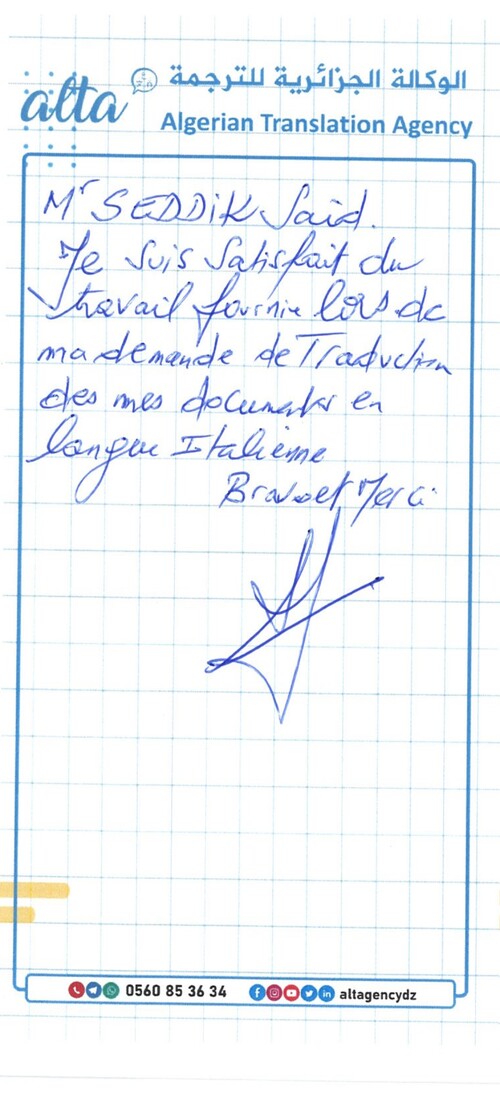 alta
الوكالة الجزائرية للترجمة
Algerian Translation Agency
Mr SEDDIK Said.
Je suis satisfait du
travail fournie lors de
ma demande de Traduction
des mes documents en
langue Italienne
Bravo et Merci.
0560 85 36 34 altagencydz